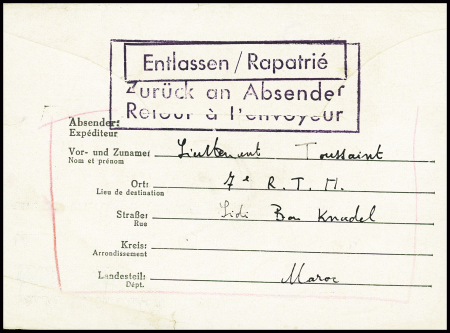 Entlassen / Rapatrié
Zurück an Absender
Retour à l'envoyeur
Absender:
Expéditeur
Vor- und Zuname: Lieutenant Toussaint
Nom et prénom
Ort: 7e R. T. M.
Lieu de destination
Straße: Sidi Bou Knadel
Rue
Kreis:
Arrondissement
Landesteil: Maroc
Dépt.